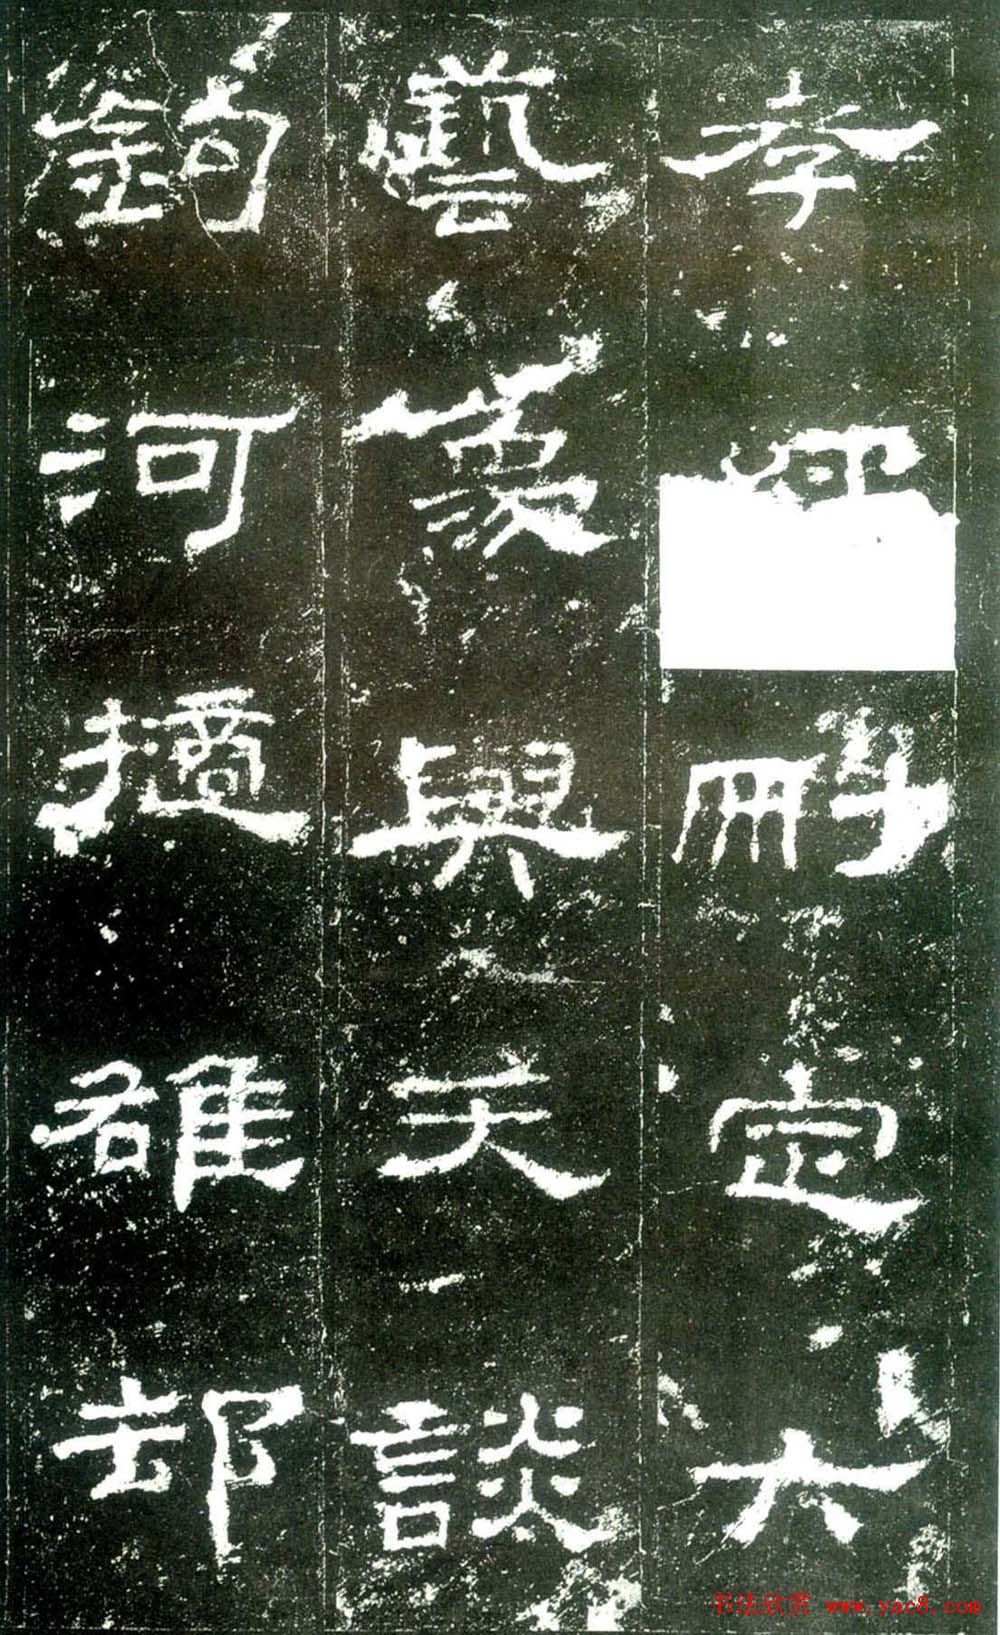 孝刪定六
藝象與天談
鉤河擿雒却
书法欣赏 www.yac8.com